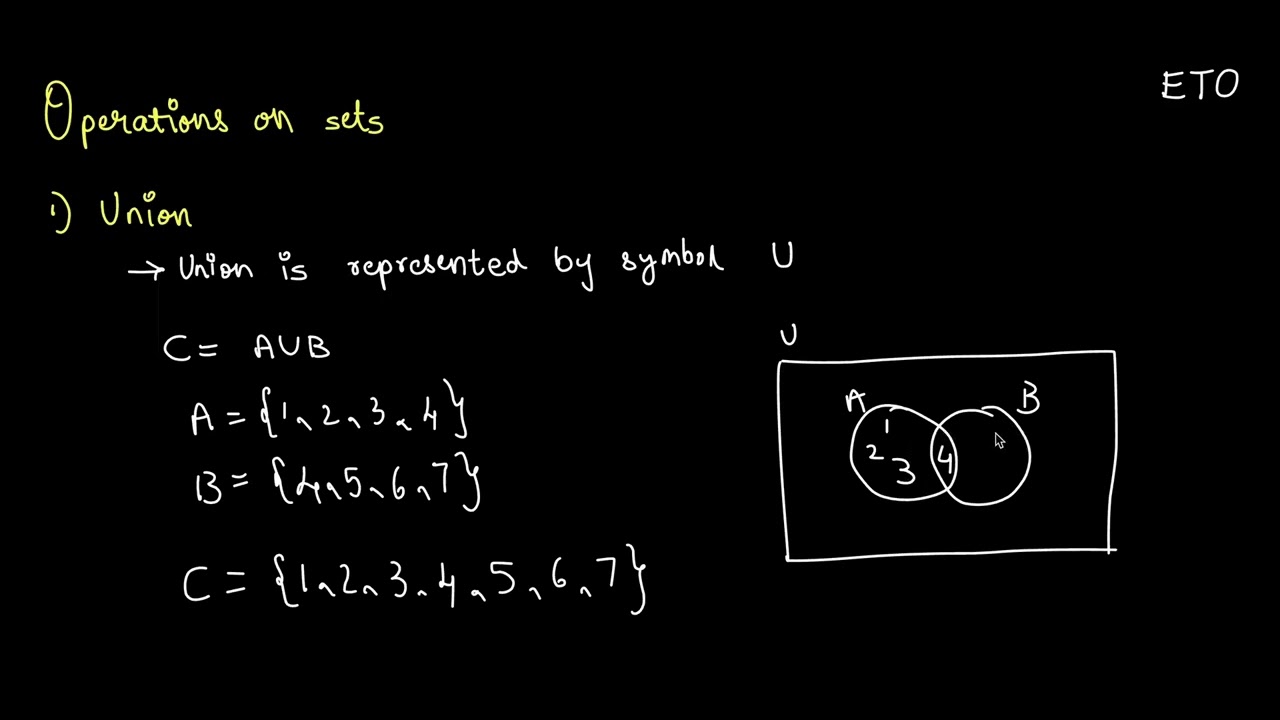 ETO
Operations on sets
1) Union
→ Union is represented by symbol ∪
C = A∪B
A = {1, 2, 3, 4}
B = {4, 5, 6, 7}
C = {1, 2, 3, 4, 5, 6, 7}
U
A B
1
2 3 4